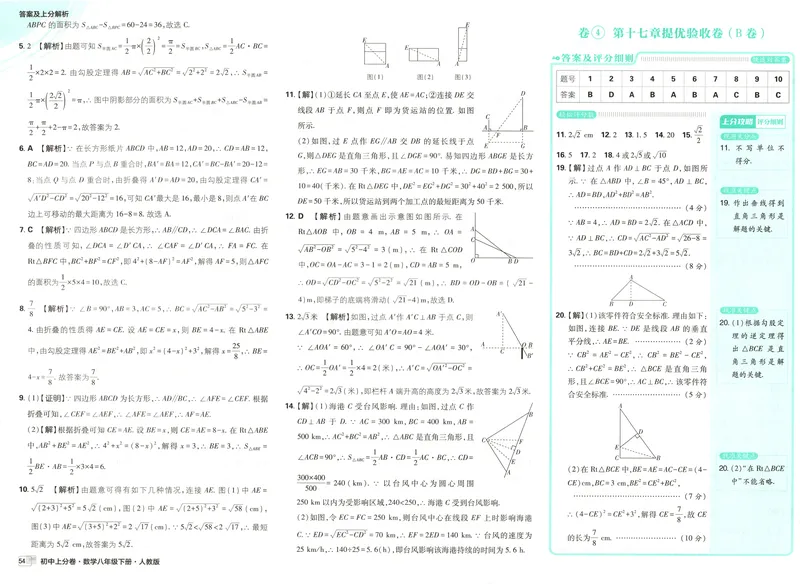 答案及上分解析
ABPC 的面积为 S△ABC-S△BPC=60-24=36,故选 C.
5. 2 【解析】由题可知 S半圆AC=1/2×π×(2/2)²=π/2=S半圆BC,S△ABC=1/2AC·BC=
1/2×2×2=2. 由勾股定理得 AB=√(AC²+BC²)=√(2²+2²)=2√2,∴ S半圆AB=
1/2π×(2√2/2)²=π,∴ 图中阴影部分的面积为 S半圆AC+S半圆BC+S△ABC-S半圆AB=
π/2+π/2+2-π=2,故答案为 2.
6. A 【解析】∵ 在长方形纸片 ABCD 中,AB=12,AD=20,∴ CD=AB=12,
BC=AD=20. 当点 P 与点 B 重合时,BA'=BA=12,CA'=BC-BA'=20-12=
8;当点 Q 与点 D 重合时,由折叠得 A'D=AD=20,由勾股定理得 CA'=
√(A'D²-CD²)=√(20²-12²)=16,可知 CA'最大是 16,最小是 8,则点 A'在 BC
边上可移动的最大距离为 16-8=8. 故选 A.
7. C 【解析】∵ 四边形 ABCD 是长方形,∴ AB∥CD,∴ ∠DCA=∠BAC. 由折
叠的性质可知,∠DCA=∠D'CA,∴ ∠CAF=∠D'CA,∴ FA=FC. 在
Rt△BFC 中,BC²+BF²=CF²,即 4²+(8-AF)²=AF²,解得 AF=5,则△AFC
的面积为 1/2×5×4=10,故选 C.
8. 7/8 【解析】∵ ∠B=90°,AB=3,AC=5,∴ BC=√(AC²-AB²)=√(5²-3²)=
4. 由折叠的性质得 AE=CE. 设 AE=CE=x,则 BE=4-x. 在 Rt△ABE
中,由勾股定理得 AE²=BE²+AB²,即 x²=(4-x)²+3²,解得 x=25/8,∴ BE=
4-x=7/8. 故答案为 7/8.
9. (1)【证明】∵ 四边形 ABCD 为长方形,∴ AD∥BC,∴ ∠AFE=∠CEF. 根据
折叠可知,∠CEF=∠AEF,∴ ∠AFE=∠AEF,∴ AF=AE.
(2)【解】根据折叠可知 CE=AE. 设 BE=x,则 CE=AE=8-x. 在 Rt△ABE
中,AB²+BE²=AE²,∴ 4²+x²=(8-x)²,解得 x=3,∴ BE=3,∴ S△ABE=
1/2BE·AB=1/2×3×4=6.
10. 5√2 【解析】由题意可得有如下几种情况,连接 AE. 图(1)中 AE=
√((2+3)²+5²)=5√2(cm),图(2)中 AE=√((2+5)²+3²)=√58(cm),
图(3)中 AE=√((3+5)²+2²)=2√17(cm). ∵ 5√2<√58<2√17,∴ 最短
距离为 5√2 cm,故答案为 5√2.
54 初中上分卷·数学八年级下册·人教版
图(1) 图(2) 图(3)
11.【解】(1)①延长 CA 至点 E,使 AE=AC;②连接 DE 交
线段 AB 于点 F,则点 F 即为货运站的位置. 如图
所示.
(2)如图,过 E 点作 EG∥AB 交 DB 的延长线于点
G,则△DEG 是直角三角形,且∠DGE=90°. 易知四边形 ABGE 是长方
形,∴ EG=AB=30 千米,BG=AE=AC=10 千米,∴ DG=BD+BG=30+
10=40(千米). 在 Rt△DEG 中,DE²=EG²+DG²=30²+40²=2 500,所以
DE=50 千米,所以货运站到两个加工点的最短距离为 50 千米.
12. D 【解析】由题意画出示意图如图所示. 在
Rt△AOB 中,OB=4 m,AB=5 m,∴ OA=
√(AB²-OB²)=√(5²-4²)=3(m),∴ 在 Rt△COD
中,OC=OA-AC=3-1=2(m),CD=AB=5 m,
∴ OD=√(CD²-OC²)=√(5²-2²)=√21(m),∴ BD=OD-OB=(√21-
4)m,即梯子的底端将滑动(√21-4)m,故选 D.
13. 2√3米 【解析】如图,过点 A'作 A'C⊥AB 于点 C,则
∠A'CO=90°. 由题意可知 A'O=AO=4 米.
∵ ∠AOA'=60°,∴ ∠OA'C=90°-∠AOA'=30°,
∴ OC=1/2OA'=1/2×4=2(米),∴ A'C=√(OA'²-OC²)=
√(4²-2²)=2√3(米),即栏杆 A 端升高的高度为 2√3米,故答案为 2√3米.
14.【解】(1)海港 C 受台风影响. 理由:如图,过点 C 作
CD⊥AB 于 D. ∵ AC=300 km,BC=400 km,AB=
500 km,∴ AC²+BC²=AB²,∴ △ABC 是直角三角形,且
∠ACB=90°,∴ S△ABC=1/2AB·CD=1/2AC·BC,∴ CD=
300×400/500=240(km). ∵ 以台风中心为圆心周围
250 km 以内为受影响区域,240<250,∴ 海港 C 受到台风影响.
(2)如图,令 EC=FC=250 km,则台风中心在线段 EF 上时影响海港
C. ∵ ED=√(EC²-CD²)=70 km,∴ EF=2ED=140 km. ∵ 台风的速度为
25 km/h,∴ 140÷25=5.6(h),即台风影响该海港持续的时间为 5.6 h.
卷④ 第十七章提优验收卷(B 卷)
答案及评分细则
题号 1 2 3 4 5 6 7 8 9 10
答案 B D A B A B A C B C
上分攻略 评分细则
11. 2√2 cm 12. 2 13. 1.5 14. 20 15. √2/2
16. 5 17. 2 18. 4或2√5或√10
11. 不写单位不
得分.
19.【解】过点 A 作 AD⊥BC 于点 D,如图所
示. ∵ 在△ABD 中,∠B=45°,AD⊥BC,
∴ AD=BD,AD²+BD²=AB².
(4分)
∵ AB=4,∴ AD=BD=2√2. 在△ACD 中,
∵ AD⊥BC,∴ CD=√(AC²-AD²)=√(26-8)=
3√2,∴ BC=BD+CD=2√2+3√2=5√2.
(8分)
19. 作出垂线得到
直角三角形是
解题的关键.
20.【解】(1)该零件符合安全标准. 理由如下:
如图,连接 BE. ∵ DE 是线段 AB 的垂直
平分线,∴ AE=BE. (2分)
∵ CB²=AE²-CE²,∴ CB²=BE²-CE²,
∴ CB²+CE²=BE²,∴ △BCE 是直角三角
形,且∠BCE=90°,∴ AC⊥BC,∴ 该零件符
合安全标准. (5分)
20. (1)根据勾股定
理的逆定理得
出△BCE 是直
角三角形是解
题的关键.
(2)在 Rt△BCE 中,BE=AE=AC-CE=(4-
CE)cm,BC=3 cm,BE²=CE²+BC²,
(7分)
∴ (4-CE)²=CE²+3²,解得 CE=7/8,故 CE
的长为 7/8 cm. (10分)
20. (2)“在 Rt△BCE
中”不能省略.